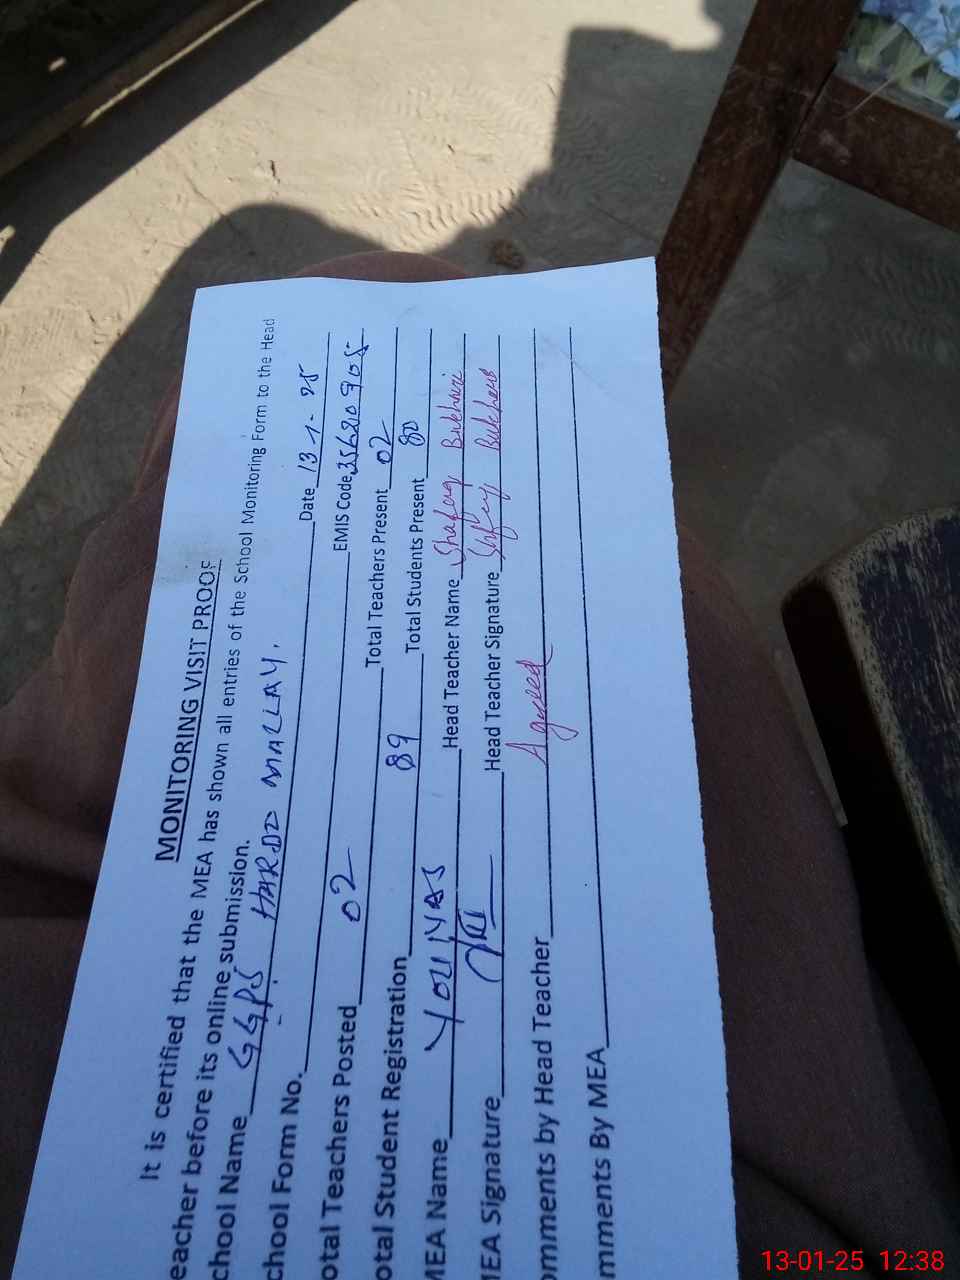 MONITORING VISIT PROOF
It is certified that the MEA has shown all entries of the School Monitoring Form to the Head
eacher before its online submission.
chool Name GGPS HARDO MALLAY.
chool Form No. - Date 13-1-25
otal Teachers Posted 02 EMIS Code
otal Student Registration 89 Total Teachers Present 02
Total Students Present 80
MEA Name YOU NAS Head Teacher Name Shafaq Bukhari
MEA Signature Head Teacher Signature Bukhari
omments by Head Teacher Agreed
mments By MEA
13-01-25 12:38